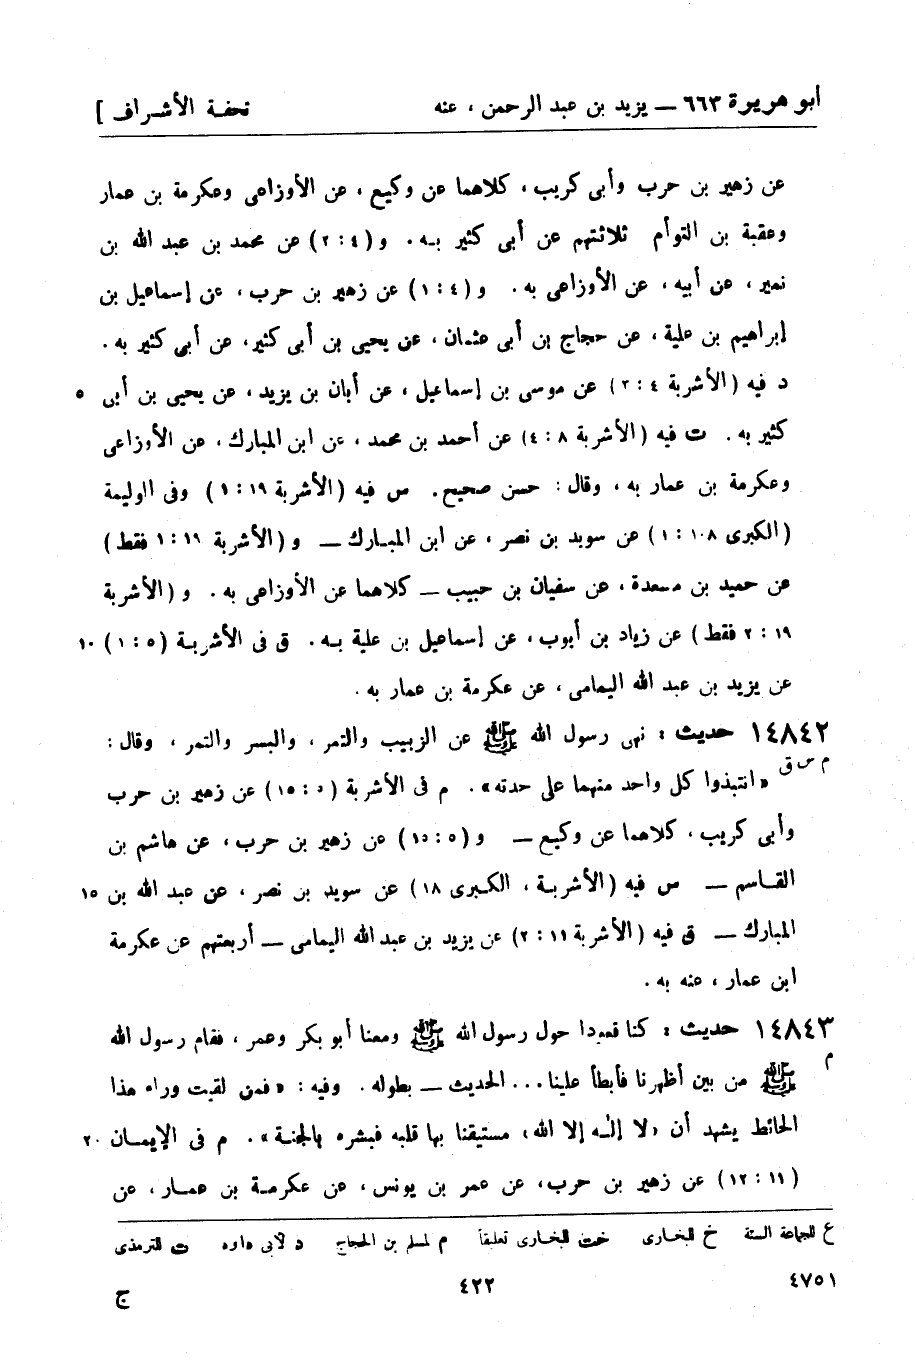 أبو هريرة ٦٦٣ — يزيد بن عبد الرحمن ، عنه تحفة الأشراف ]
عن زهير بن حرب وأبى كريب ، كلاهما عن وكيع ، عن الأوزاعى وعكرمة بن عمار
وعقبة بن التوأم ثلاثتهم عن أبى كثير به . و (٤ : ٢) عن محمد بن عبد الله بن
نمير ، عن أبيه ، عن الأوزاعى به . و (٤ : ١) عن زهير بن حرب ، عن إسماعيل بن
إبراهيم بن علية ، عن حجاج بن أبى عثمان ، عن يحيى بن أبى كثير، عن أبى كثير به .
د فيه (الأشربة ٤ : ٢) عن موسى بن إسماعيل ، عن أبان بن يزيد ، عن يحيى بن أبى ٥
كثير به . ت فيه (الأشربة ٨ : ٤) عن أحمد بن محمد ، عن ابن المبارك ، عن الأوزاعى
وعكرمة بن عمار به ، وقال : حسن صحيح . س فيه (الأشربة ١٩ : ١) وفى الوليمة
(الكبرى ١٠٨ : ١) عن سويد بن نصر ، عن ابن المبارك — و (الأشربة ١٩ : ١ فقط)
عن حميد بن مسعدة ، عن سفيان بن حبيب — كلاهما عن الأوزاعى به . و (الأشربة
١٩ : ٢ فقط) عن زياد بن أيوب ، عن إسماعيل بن علية به . ق فى الأشربة (٥ : ١) ١٠
عن يزيد بن عبد الله اليمامى ، عن عكرمة بن عمار به .
١٤٨٤٢ حديث : نهى رسول الله ﷺ عن الزبيب والتمر ، والبسر والتمر ، وقال :
م س ق «انتبذوا كل واحد منهما على حدته» . م فى الأشربة (٥ : ١٥) عن زهير بن حرب
وأبى كريب ، كلاهما عن وكيع — و (٥ : ١٥) عن زهير بن حرب ، عن هاشم بن
القاسم — س فيه (الأشربة ، الكبرى ١٨) عن سويد بن نصر ، عن عبد الله بن ١٥
المبارك — ق فيه (الأشربة ١١ : ٢) عن يزيد بن عبد الله اليمامى — أربعتهم عن عكرمة
ابن عمار ، عنه به .
١٤٨٤٣ حديث : كنا قعودا حول رسول الله ﷺ ومعنا أبو بكر وعمر ، فقام رسول الله
م ﷺ من بين أظهرنا فأبطأ علينا ... الحديث — بطوله . وفيه : «فمن لقيت وراء هذا
الحائط يشهد أن «لا إله إلا الله» مستيقنا بها قلبه فبشره بالجنة» . م فى الإيمان ٢٠
(١١ : ١٢) عن زهير بن حرب ، عن عمر بن يونس ، عن عكرمة بن عمار ، عن
ع للجماعة الستة خ للبخارى خت للبخارى تعليقاً م لمسلم بن الحجاج د لأبى داود ت للترمذى
٤٧٥١ ٤٢٢ ج